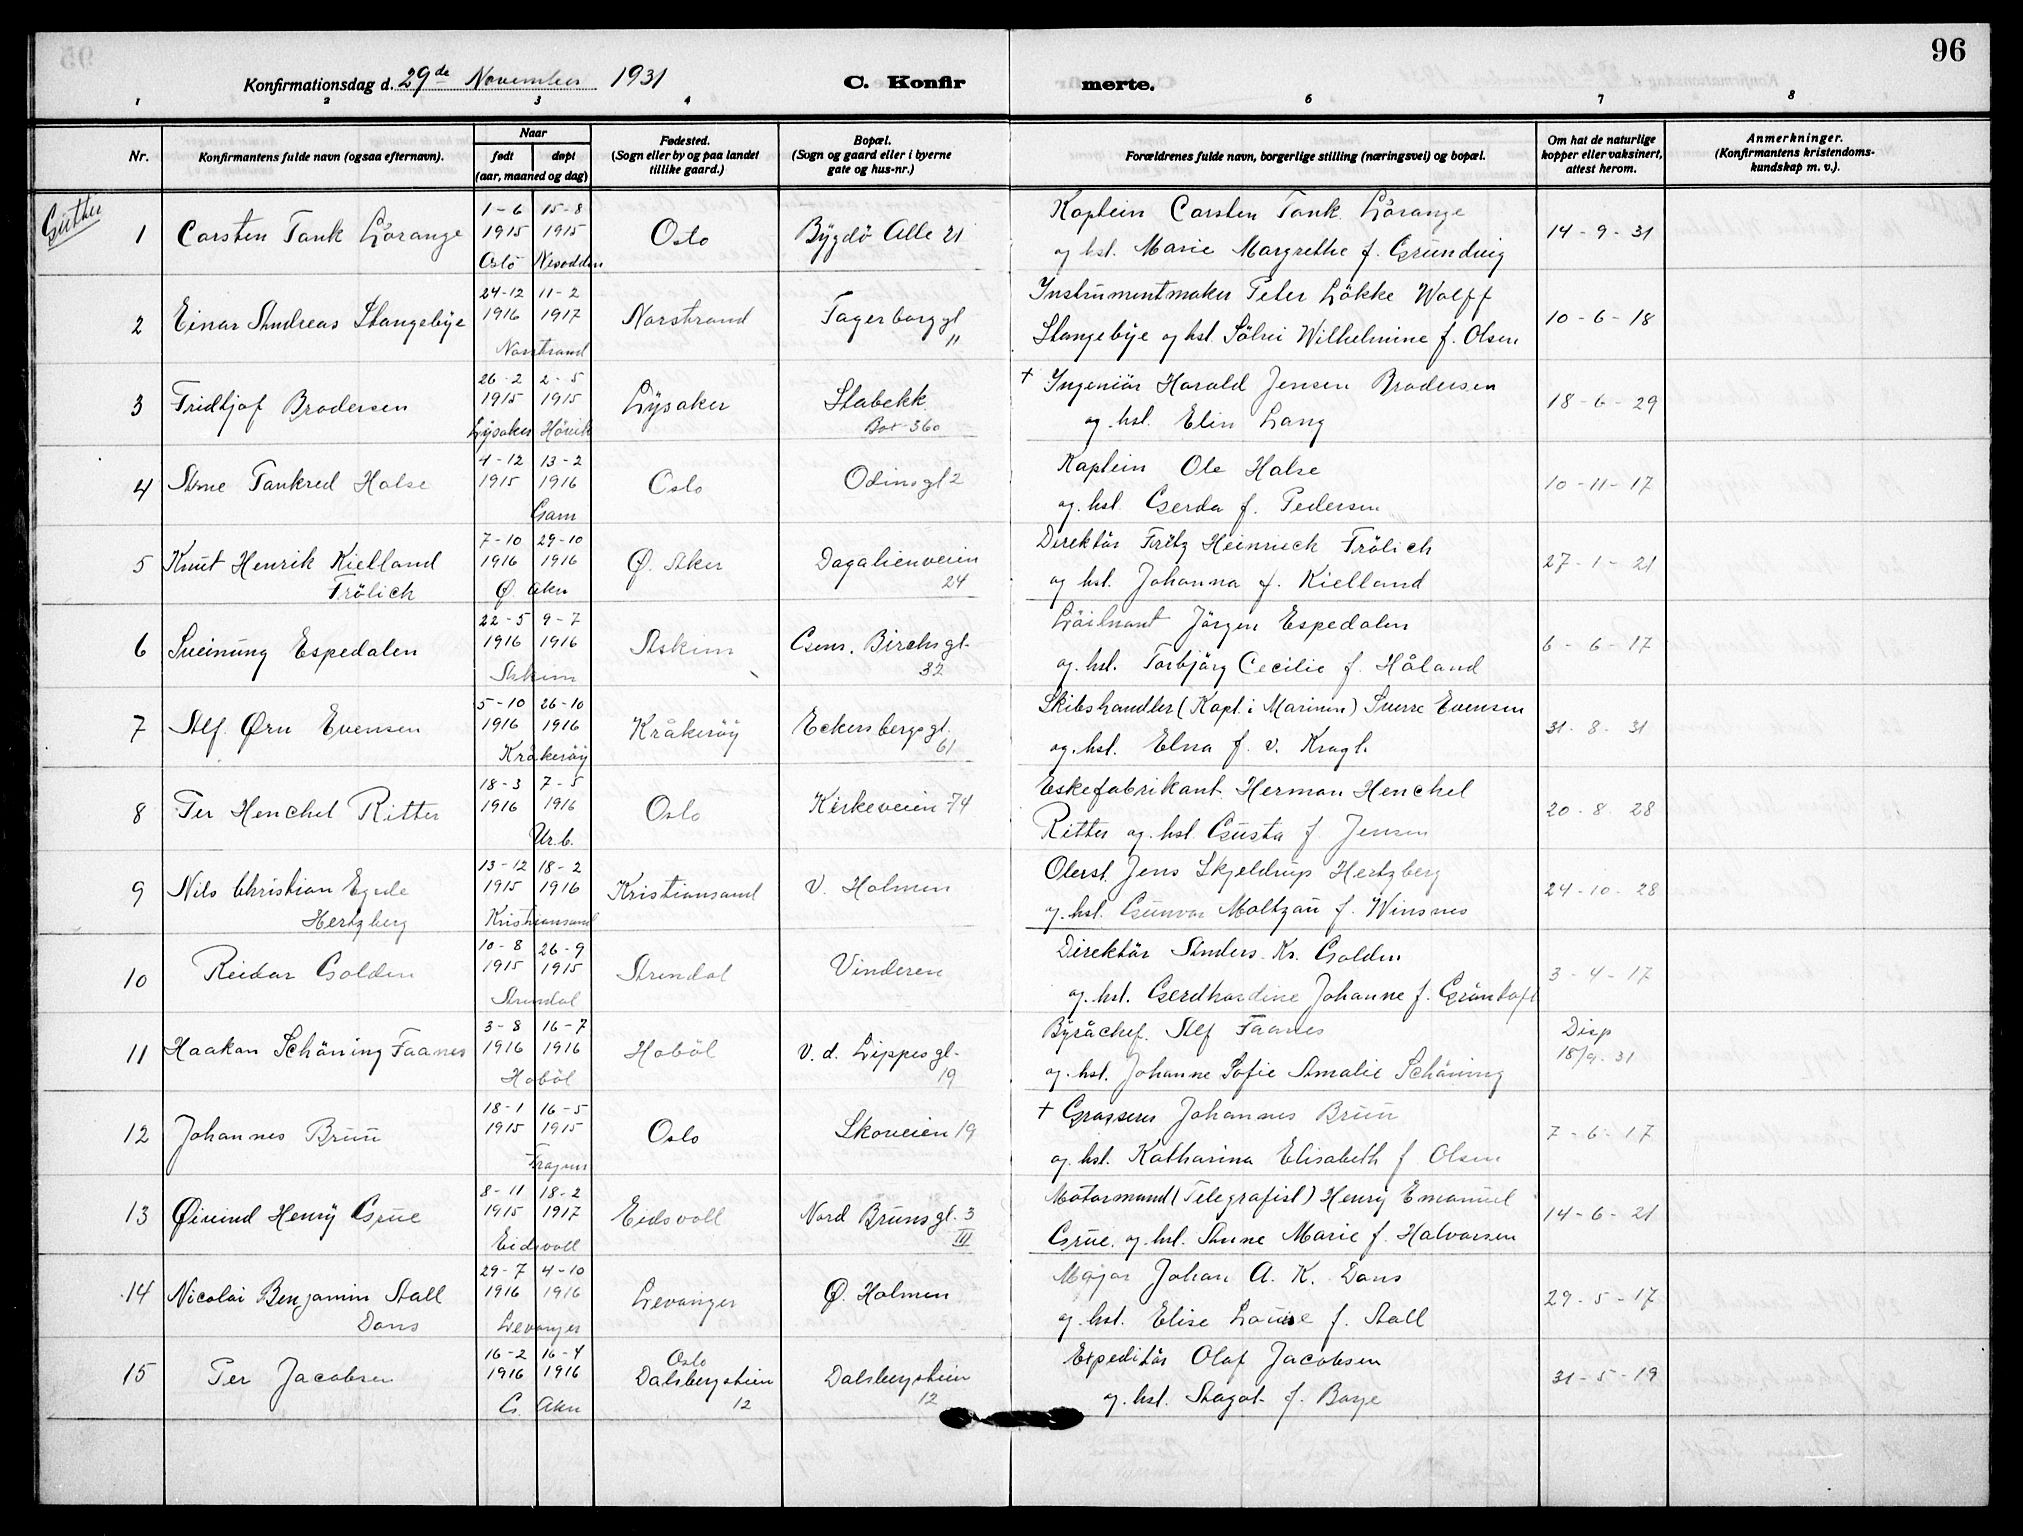 96
Konfirmationsdag d. 29de November 1931 C. Konfirmerte.
1 2 3 4 6 7 8
Nr. Konfirmantens fulde navn (ogsaa efternavn). Naar født døpt (aar, maaned og dag) Fødested. (Sogn eller by og paa landet tillike gaard.) Bopæl. (Sogn og gaard eller i byerne gate og hus-nr.) Forældrenes fulde navn, borgerlige stilling (næringsvei) og bopæl. Om hat de naturlige kopper eller vaksinert, attest herom. Anmerkninger. (Konfirmantens kristendomskundskap m. v.).
1 Carsten Tank Lorange 1-6 1915 Oslo 15-8 1915 Nesodden Oslo Bygdö Alle 21 Kaptein Carsten Tank Lorange og hst. Marie Margrethe f. Grundvig 14-9-31
2 Einar Andreas Stangebye 24-12 1916 11-2 1917 Norstrand Norstrand Fagerborggt 11 Instrumentmaker Peter Lökke Wolff Stangebye og hst. Sölvi Wilhelmine f. Olsen 10-6-18
3 Fridtjof Brodersen 26-2 1915 Lysaker 2-5 1915 Hövik Lysaker Stabekk Box 360 + Ingeniör Harald Jensen Brodersen og hst. Elin Lang 18-6-29
4 Arne Tankred Halse 4-12 1915 13-2 1916 Gam Oslo Odinsgt 2 Kaptein Ole Halse og hst. Gerda f. Pedersen 10-11-17
5 Knut Henrik Kielland Frölich 7-10 1916 29-10 1916 Ø. Aker Ø. Aker Dagalienveien 24 Direktör Fritz Heinrich Frölich og hst. Johanna f. Kielland 27-1-21
6 Sveinung Espedalen 22-5 1916 9-7 1916 Askim Askim Gens. Birchsgt. 32 Löitnant Jörgen Espedalen og hst. Torbjörg Cecilie f. Håland 6-6-17
7 Alf Ørn Evensen 5-10 1916 26-10 1916 Kråkeröy Kråkeröy Eckersbergsgt. 61 Skibshandler (Kapt. i Marinen) Sverre Evensen og hst. Elna f. v. Kragh 31-8-31
8 Per Henchel Ritter 18-3 1916 7-5 1916 Ur.b. Oslo Kirkeveien 74 Eskefabrikant Herman Henchel Ritter og hst. Gusta f. Jensen 20-8-28
9 Nils Christian Egede Hertzberg 13-12 1915 18-2 1916 Kristiansand Kristiansand V. Holmen Oberst Jens Skjeldrup Hertzberg og hst. Gunvor Moltzau f. Winsnes 24-10-28
10 Reidar Golden 10-8 1915 26-9 1915 Arendal Arendal Vinderen Direktör Anders Kr. Golden og hst. Gerdhardine Johanne f. Gröntoft 3-4-17
11 Haakon Schöning Faanes 3-8 1916 16-7 1916 Hoböl Hoböl v. d. Lippesgt. 19 Byråchef Alf Faanes og hst. Johanne Sofie Amalie Schöning Disp 18/9-31
12 Johannes Bruu 18-1 1915 16-5 1915 Frogner Oslo Skoveien 19 + Grosserer Johannes Bruu og hst. Katharina Elisabeth f Olsen 7-6-17
13 Øivind Henry Grue 8-11 1915 18-2 1917 Eidsvoll Eidsvoll Nord Brunsgt. 3 III Motormand (Telegrafist) Henry Emanuel Grue og hst. Anne Marie f. Halvorsen 14-6-21
14 Nicolai Benjamin Aall Dons 29-7 1916 4-10 1916 Levanger Levanger Ø. Holmen Major Johan A. K. Dons og hst. Elise Louise f. Aall 29-5-17
15 Per Jacobsen 16-2 1916 16-4 1916 G. Aker Oslo Dalsbergstien 12 Dalsbergstien 12 Expeditör Olaf Jacobsen og hst. Aagot f. Boye 31-5-19